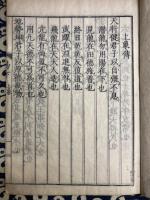 上象傳
天行健君子以自强不息
潛龍勿用陽在下也
見龍在田德施普也
終日乾乾反復道也
或躍在淵進无咎也
飛龍在天大人造也
亢龍有悔盈不可久也
用九天德不可爲首也
地勢坤君子以厚德載物